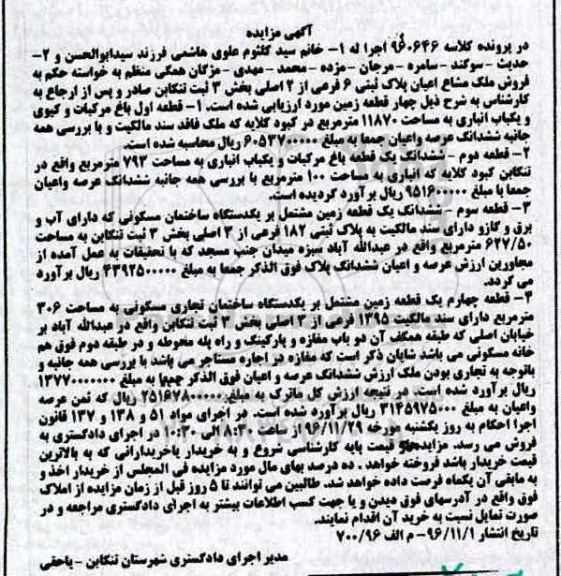 آگهی مزایده
در پرونده کلاسه ۹۶۰۶۴۶ اجرا له ۱- خانم سید کلثوم علوی هاشمی فرزند سیدابوالحسن و ۲-
حدیث - سوگند - سامره - مرجان - مژده - محمد - مهدی - مژگان همگی منظم به خواسته حکم به
فروش ملک مشاع اعیان پلاک ثبتی ۶ فرعی از ۲ اصلی بخش ۳ ثبت تنکابن صادر و پس از ارجاع به
کارشناس به شرح ذیل چهار قطعه زمین مورد ارزیابی شده است. ۱- قطعه اول باغ مرکبات و کیوی
و یکباب انباری به مساحت ۱۱۸۷۰ مترمربع در کبود کلایه که ملک فاقد سند مالکیت و با بررسی همه
جانبه ششدانگ عرصه واعیان جمعا به مبلغ ۶۰۵۳۷۰۰۰۰۰ ریال محاسبه شده است.
۲- قطعه دوم - ششدانگ یک قطعه باغ مرکبات و یکباب انباری به مساحت ۷۹۳ مترمربع واقع در
تنکابن کبود کلایه که انباری به مساحت ۱۰۰ مترمربع با بررسی همه جانبه ششدانگ عرصه واعیان
جمعا با مبلغ ۹۵۱۶۰۰۰۰۰ ریال برآورد گردیده است.
۳- قطعه سوم - ششدانگ یک قطعه زمین مشتمل بر یکدستگاه ساختمان مسکونی که دارای آب و
برق و گازو دارای سند مالکیت به پلاک ثبتی ۱۸۲ فرعی از ۳ اصلی بخش ۳ ثبت تنکابن به مساحت
۶۲۷/۵۰ مترمربع واقع در عبدالله آباد سبزه میدان جنب مسجد که با تحقیقات به عمل آمده از
مجاورین ارزش عرصه و اعیان ششدانگ پلاک فوق الذکر جمعا به مبلغ ۴۳۹۲۵۰۰۰۰۰ ریال برآورد
می گردد.
۴- قطعه چهارم یک قطعه زمین مشتمل بر یکدستگاه ساختمان تجاری مسکونی به مساحت ۳۰۶
مترمربع دارای سند مالکیت ۱۳۹۵ فرعی از ۳ اصلی بخش ۳ ثبت تنکابن واقع در عبدالله آباد بر
خیابان اصلی که طبقه همکف آن دو باب مغازه و پارکینگ و راه پله محوطه و در طبقه دوم فوق هم
خانه مسکونی می باشد شایان ذکر است که مغازه در اجاره مستاجر می باشد با بررسی همه جانبه و
باتوجه به تجاری بودن ملک ارزش ششدانگ عرصه و اعیان فوق الذکر جمعا به مبلغ ۱۳۷۷۰۰۰۰۰۰۰
ریال برآورد شده است. در نتیجه ارزش کل ماترک به مبلغ ۲۵۱۶۷۸۰۰۰۰۰ ریال که ثمن عرصه
واعیان به مبلغ ۳۱۴۵۹۷۵۰۰۰ ریال برآورد شده است. در اجرای مواد ۵۱ و ۱۳۸ و ۱۳۷ قانون
اجرا احکام به روز یکشنبه مورخه ۹۶/۱۱/۲۹ از ساعت ۸:۳۰ الی ۱۰:۳۰ در اجرای دادگستری به
فروش می رسد. مزایده از قیمت پایه کارشناسی شروع و به خریدار یاخریدارانی که به بالاترین
قیمت خریدار باشد فروخته خواهد . ده درصد بهای مال مورد مزایده فی المجلس از خریدار اخذ و
به مابقی آن یکماه فرصت داده خواهد شد. طالبین می توانند تا ۵ روز قبل از زمان مزایده از املاک
فوق واقع در آدرسهای فوق دیدن و یا جهت کسب اطلاعات بیشتر به اجرای دادگستری مراجعه و در
صورت تمایل نسبت به خرید آن اقدام نمایند.
تاریخ انتشار ۹۶/۱۱/۱- م الف ۷۰۰/۹۶
مدیر اجرای دادگستری شهرستان تنکابن - یاحقی